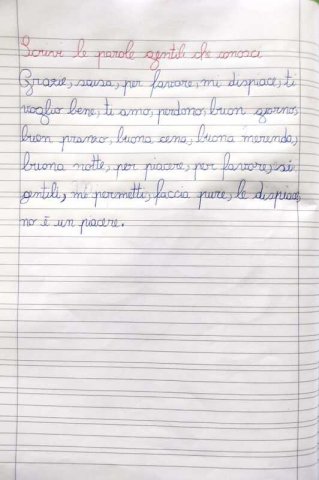 Scrivi le parole gentili che conosci
Grazie, scusa, per favore, mi dispiace, ti
voglio bene, ti amo, perdono, buon giorno,
buon pranzo, buona cena, buona merenda,
buona notte, per piacere, per favore, sii
gentili, mi permetti, faccia pure, le dispiace,
no è un piacere.